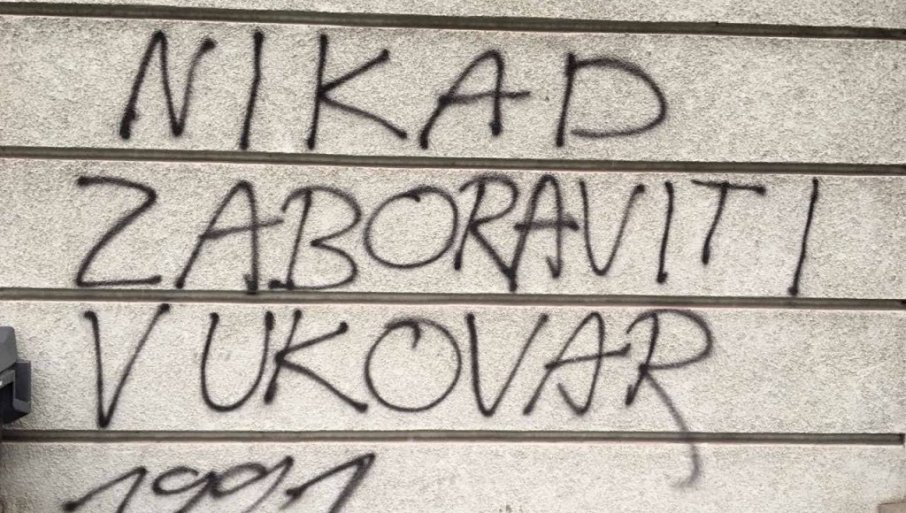 NIKAD
ZABORAVITI
VUKOVAR
1991